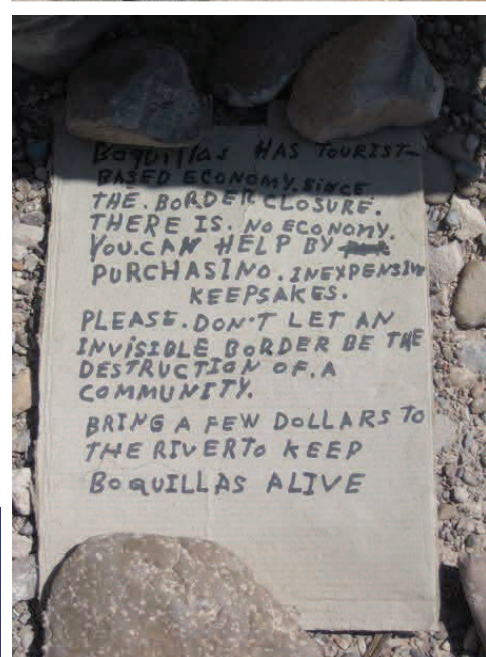 Boquillas HAS TOURIST-
BASED ECONOMY. SINCE
THE. BORDER CLOSURE.
THERE IS. NO ECONOMY.
YOU.CAN HELP BY
PURCHASING. INEXPENSIVE
KEEPSAKES.
PLEASE. DON'T LET AN
INVISIBLE BORDER BE THE
DESTRUCTION OF. A
COMMUNITY.
BRING A FEW DOLLARS TO
THE RIVER TO KEEP
BOQUILLAS ALIVE